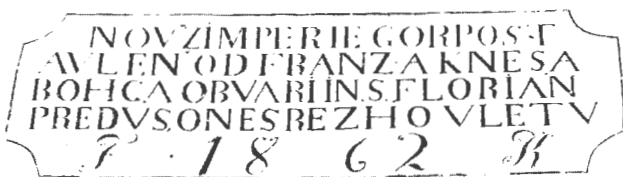 NOVZIMPERIEGORPOST
AVLEN'ODFRANZAKNESA
BOHCAOBVARIINS.FLORIAN
PREDVSONESREZHOVLETV
F. 1862 K